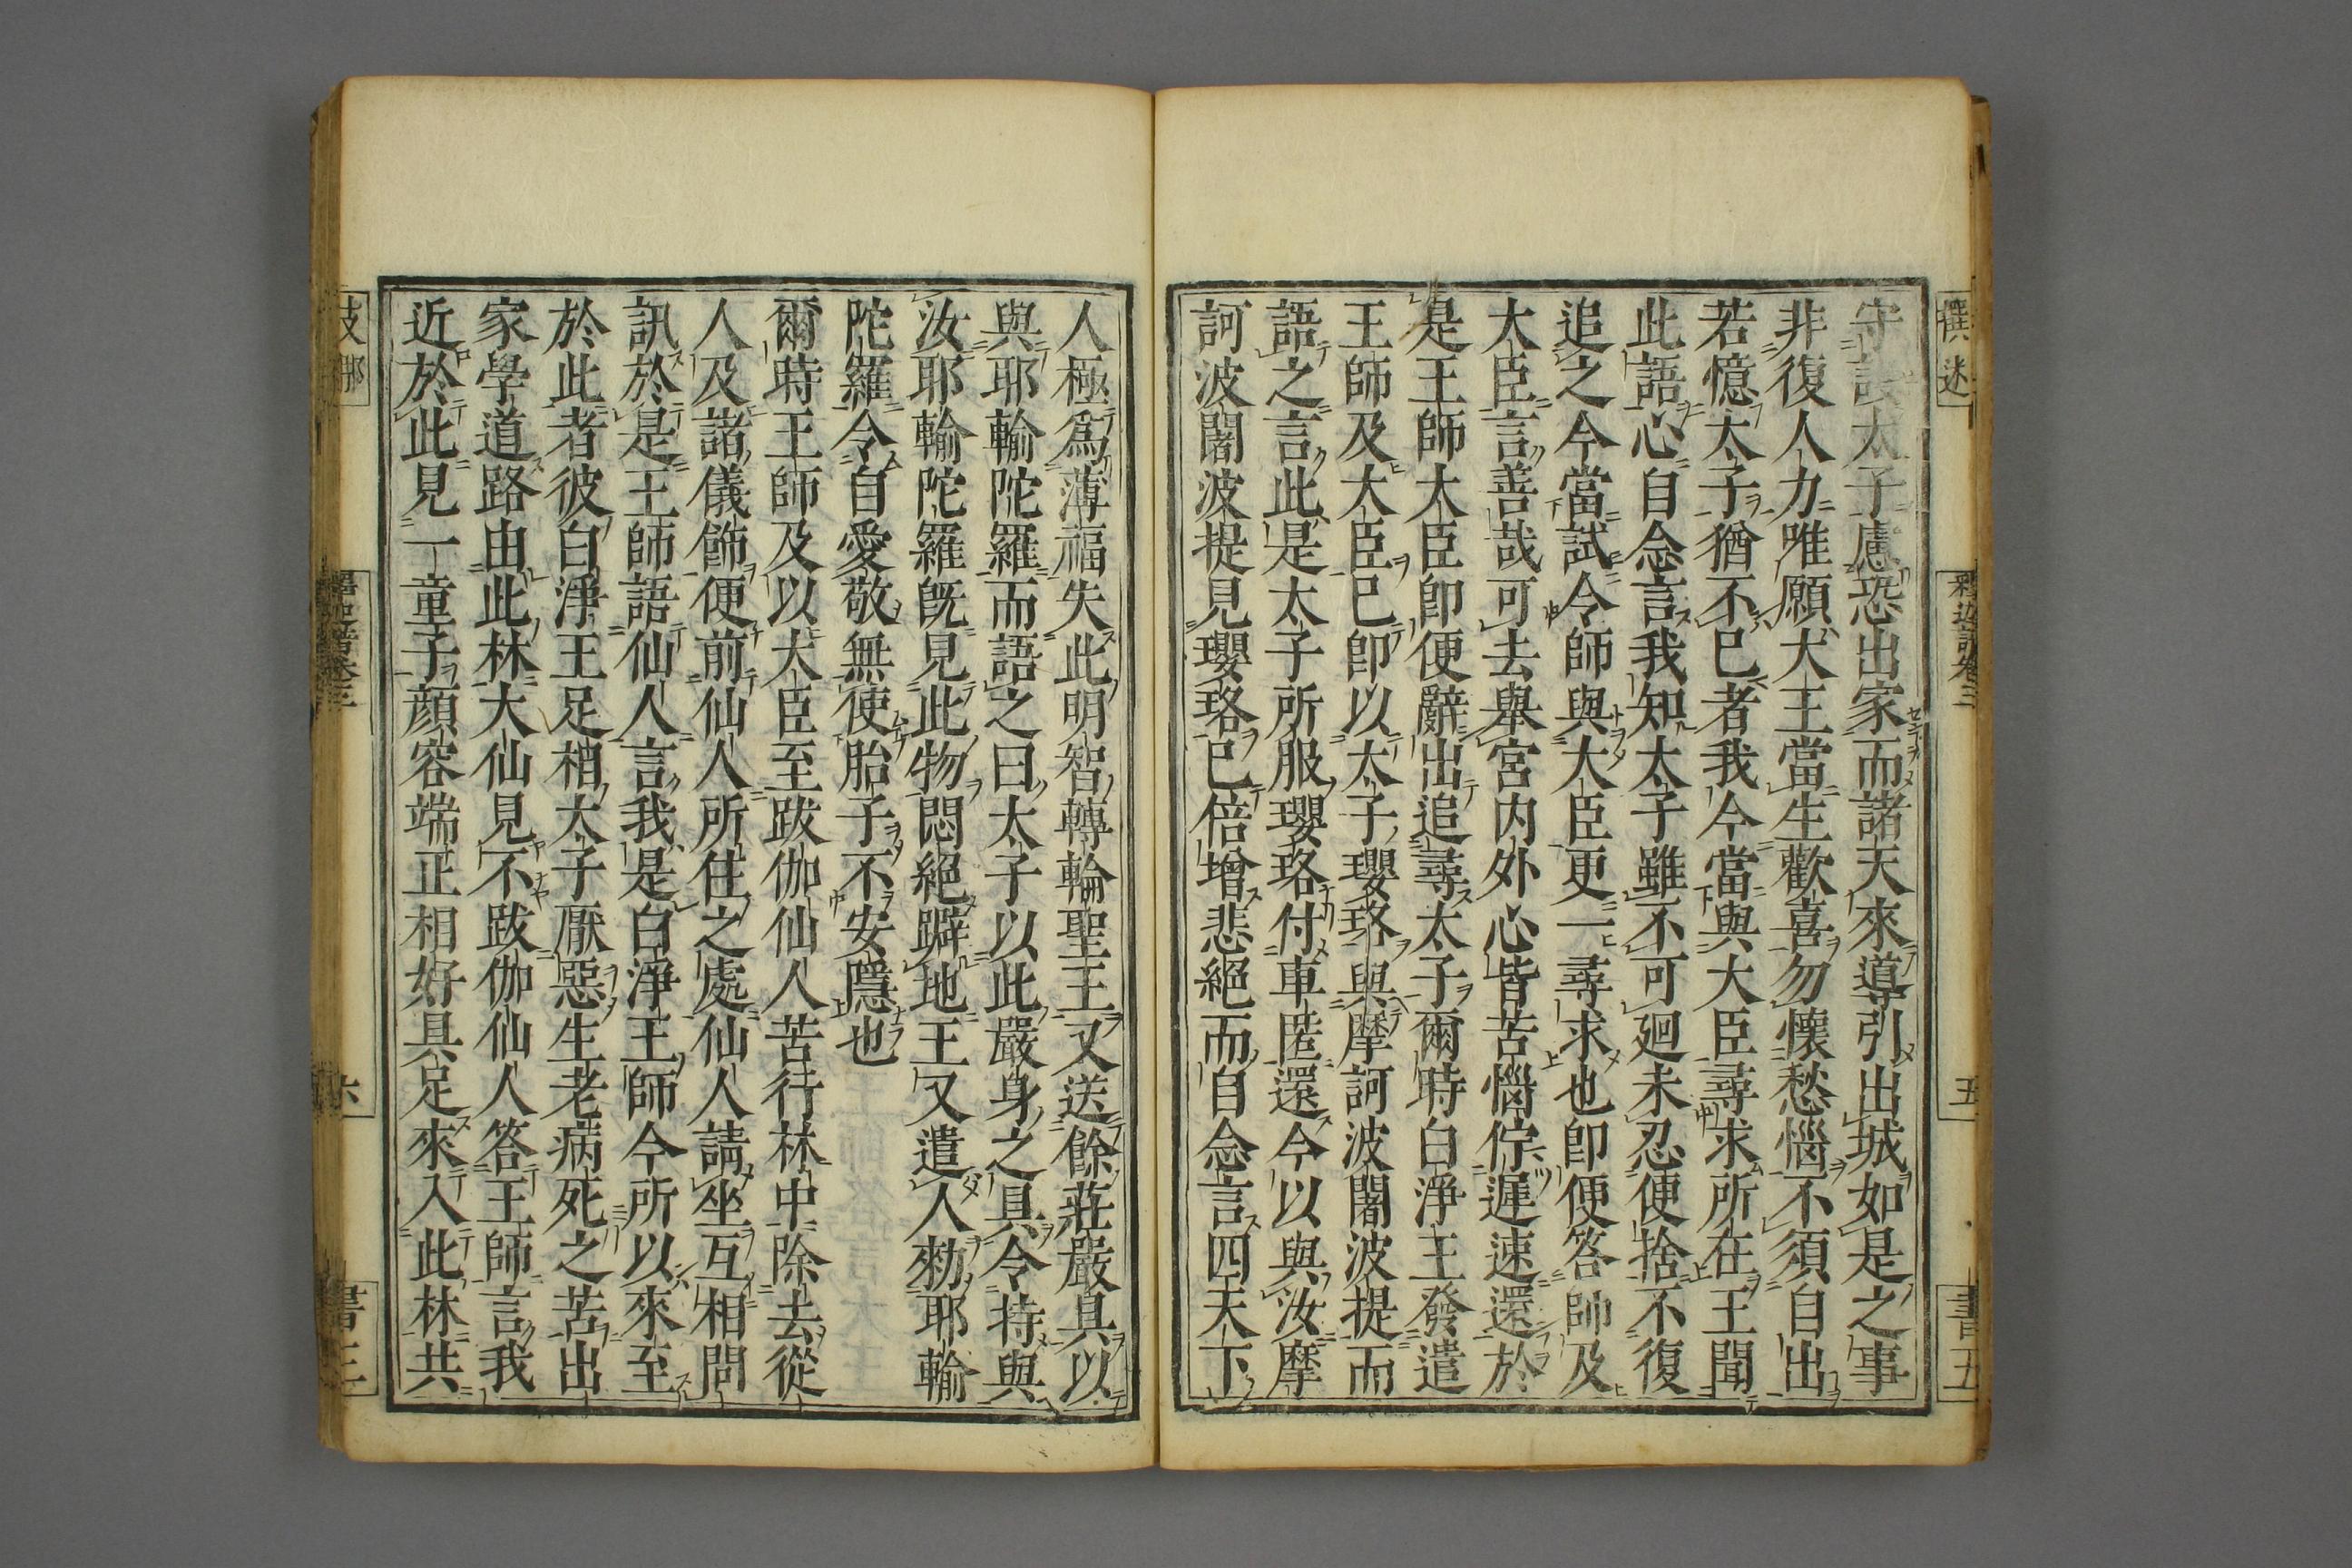 守護太子慮恐出家而諸天來導引出城如是之事
非復人力唯願大王當生歡喜勿懷愁惱不須自出
若憶太子猶不已者我今當與大臣尋求所在王聞
此語心自念言我知太子雖不可廻未忍便捨不復
追之今當試令師與大臣更一尋求也卽便答師及
大臣言善哉可去舉宮内外心皆苦惱佇遲速還於
是王師大臣卽便辭出追尋太子爾時白淨王發遣
王師及大臣已卽以太子瓔珞與摩訶波闍波提而
語之言此是太子所服瓔珞付車匿還今以與汝摩
訶波闍波提見瓔珞已倍增悲絕而自念言四天下
人極爲薄福失此明智轉輪聖王又送餘莊嚴具以
與耶輸陀羅而語之曰太子以此嚴身之具令持與
汝耶輸陀羅既見此物悶絕躃地王又遣人勑耶輸
陀羅令自愛敬無使胎子不安隱也
爾時王師及以大臣至跋伽仙人苦行林中除去從
人及諸儀飾便前仙人所住之處仙人請坐互相問
訊於是王師語仙人言我是白淨王師今所以來至
於此者彼白淨王足相太子厭惡生老病死之苦出
家學道路由此林大仙見不跋伽仙人答王師言我
近於此見一童子顏容端正相好具足來入此林共
釋迦譜卷三
五
書五
釋迦譜卷三
六
書三